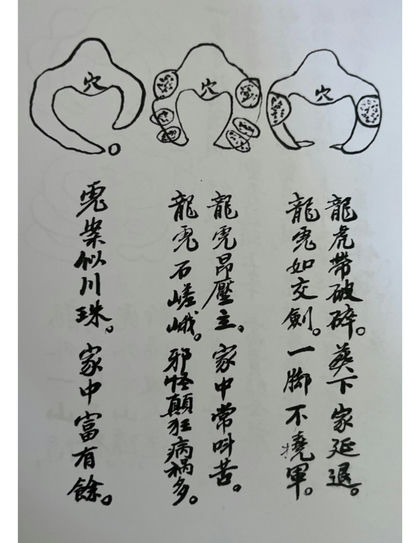 穴
穴
穴
龍虎帶破碎。葬下家延退。
龍虎如交劍。一脚不撓軍。
龍虎昂壓主。家中常叫苦。
龍虎石嵯峨。邪怪顛狂病禍多。
虎案似川珠。家中富有餘。